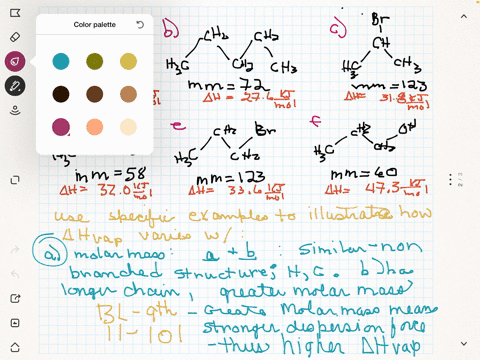 Color palette
b)
CH2 CH2
H3C CH2 CH3
mm = 72
ΔH = 27.6 KJ/mol
c)
Br
CH
H3C CH3
mm = 123
ΔH = KJ/mol
mm = 58
ΔH = 32.0 KJ/mol
e
CH2 Br
H3C CH2
mm = 123
ΔH = KJ/mol
f
CH2 OH
H3C CH2
mm = 60
ΔH = 47.3 KJ/mol
2 / 3
use specific examples to illustrate how
ΔHvap varies w/:
a) molar mass: a + b : similar-non
branched structure; H3C. b) has
longer chain, greater molar mass
- Greate Molar mass means
11-101 stronger dispersion force
- thus higher ΔHvap